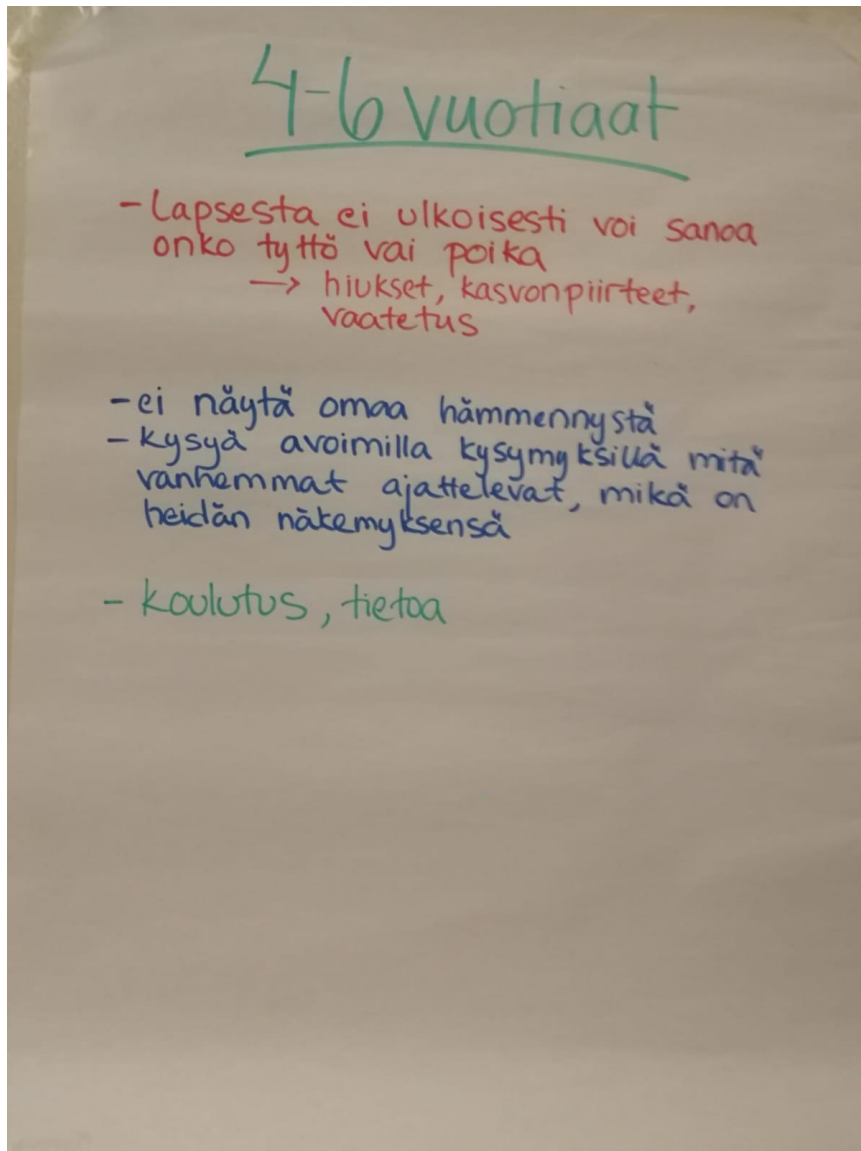 4-6 vuotiaat
- Lapsesta ei ulkoisesti voi sanoa
onko tyttö vai poika
→ hiukset, kasvonpiirteet,
vaatetus
- ei näytä omaa hämmennystä
- kysyä avoimilla kysymyksillä mitä
vanhemmat ajattelevat, mikä on
heidän näkemyksensä
- koulutus, tietoa